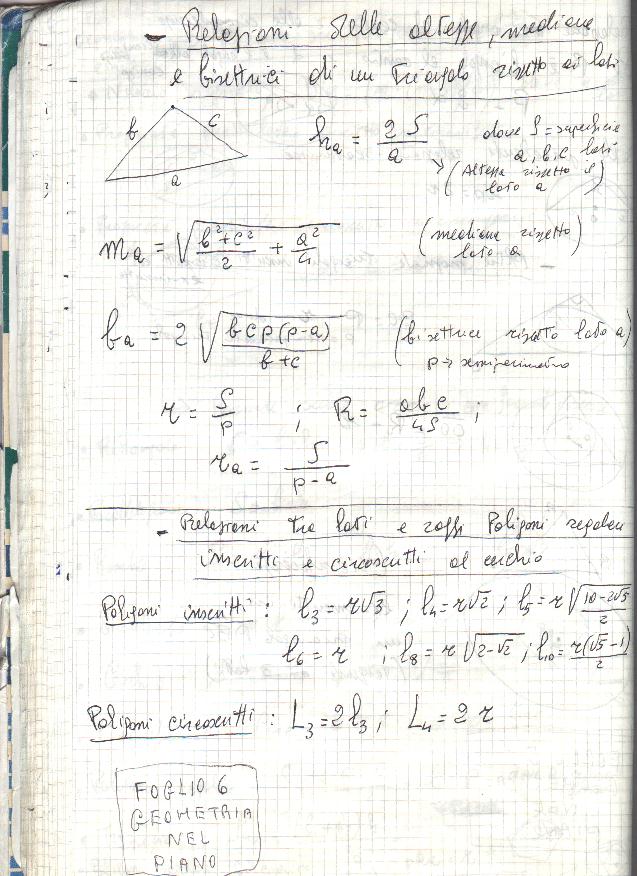 - Relazioni delle altezze, mediane
e bisettrici di un triangolo rispetto ai lati
b c
a
h_a = 2S/a dove S = superficie
a, b, c lati
→ (Altezza rispetto il
lato a)
m_a = √((b²+c²)/2 + a²/4) (mediana rispetto
lato a)
b_a = 2 √(b c p (p-a))/(b+c) (bisettrice rispetto lato a)
p → semiperimetro
r = S/p ; R = abc/4S ;
r_a = S/(p-a)
- Relazioni tra lati e raggi Poligoni regolari
inscritti e circoscritti al cerchio
Poligoni inscritti : l₃ = r√3 ; l₄ = r√2 ; l₅ = r √(10-2√5)/2
l₆ = r ; l₈ = r √(2-√2) ; l₁₀ = r(√5-1)/2
Poligoni circoscritti : L₃ = 2l₃ ; L₄ = 2 r
FOGLIO 6
GEOMETRIA
NEL
PIANO